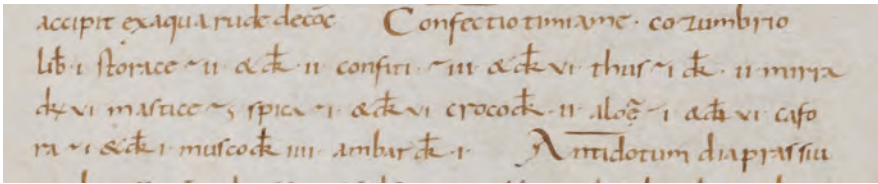 accipit exaqua rude decoc̄ Confectio timiame · cozumbrio
lib · i storace ~ ii · & dk · ii · confiti · ~ iii · & dk vi · thus ~ i dk · ii mirra
dk vi mastice ~ ʒ spica ~ i · & dk vi croco dk · ii · aloē ~ i & dk vi · cafo
ra ~ i & dk i · musco dk iiii · ambar dk · i · Antidotum diaprassiu